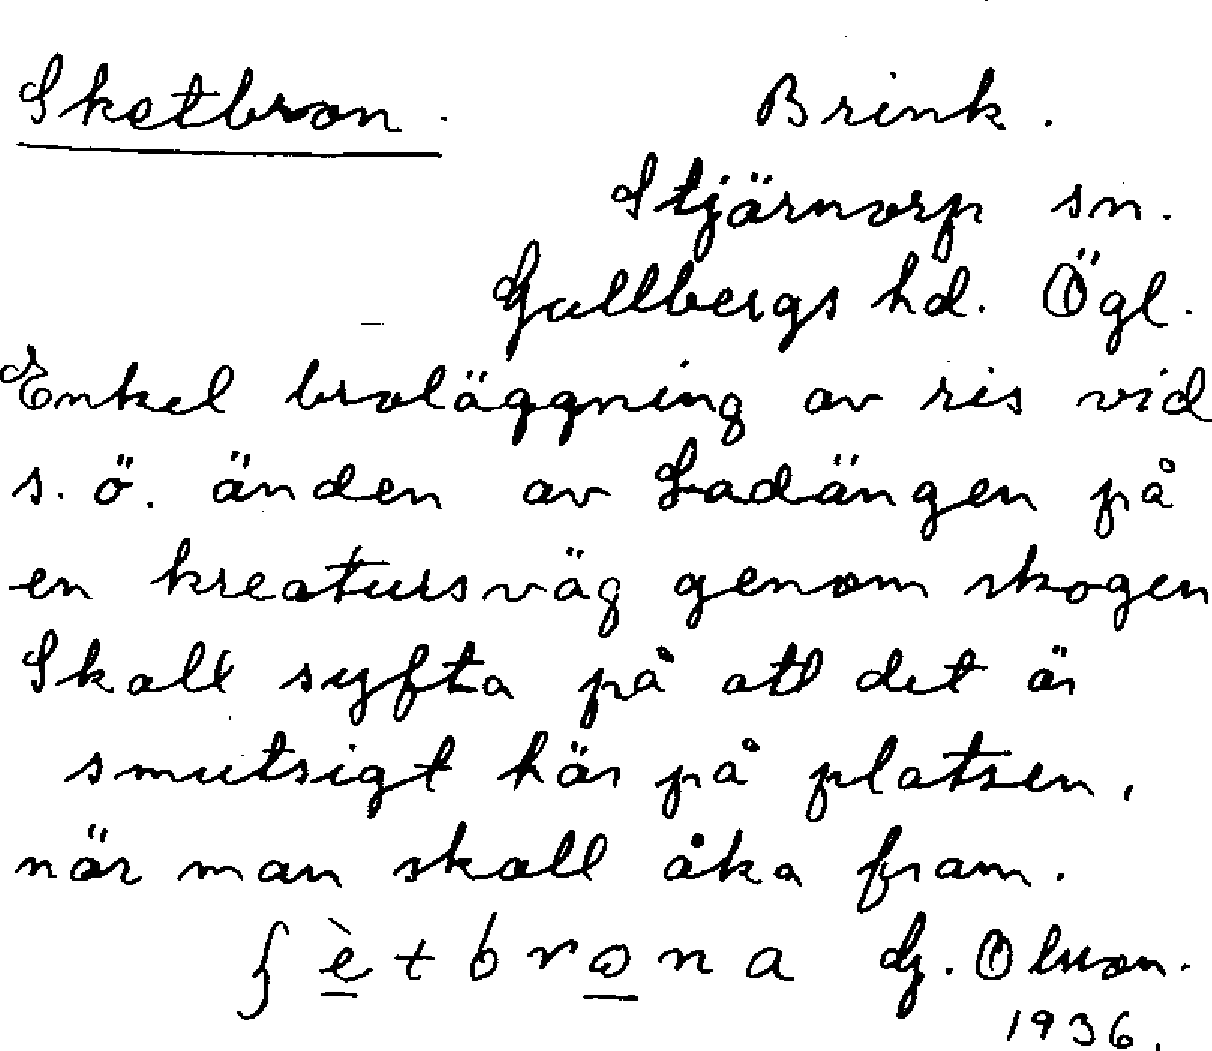 Sketbron. Brink.
Stjärnorp sn.
Gullbergs hd. Ögl.
Enkel broläggning av ris vid
s. ö. änden av Ladängen på
en kreatursväg genom skogen
Skall syfta på att det är
smutsigt här på platsen,
när man skall åka fram.
ʃ è t b r o n a G. Olson.
1936.